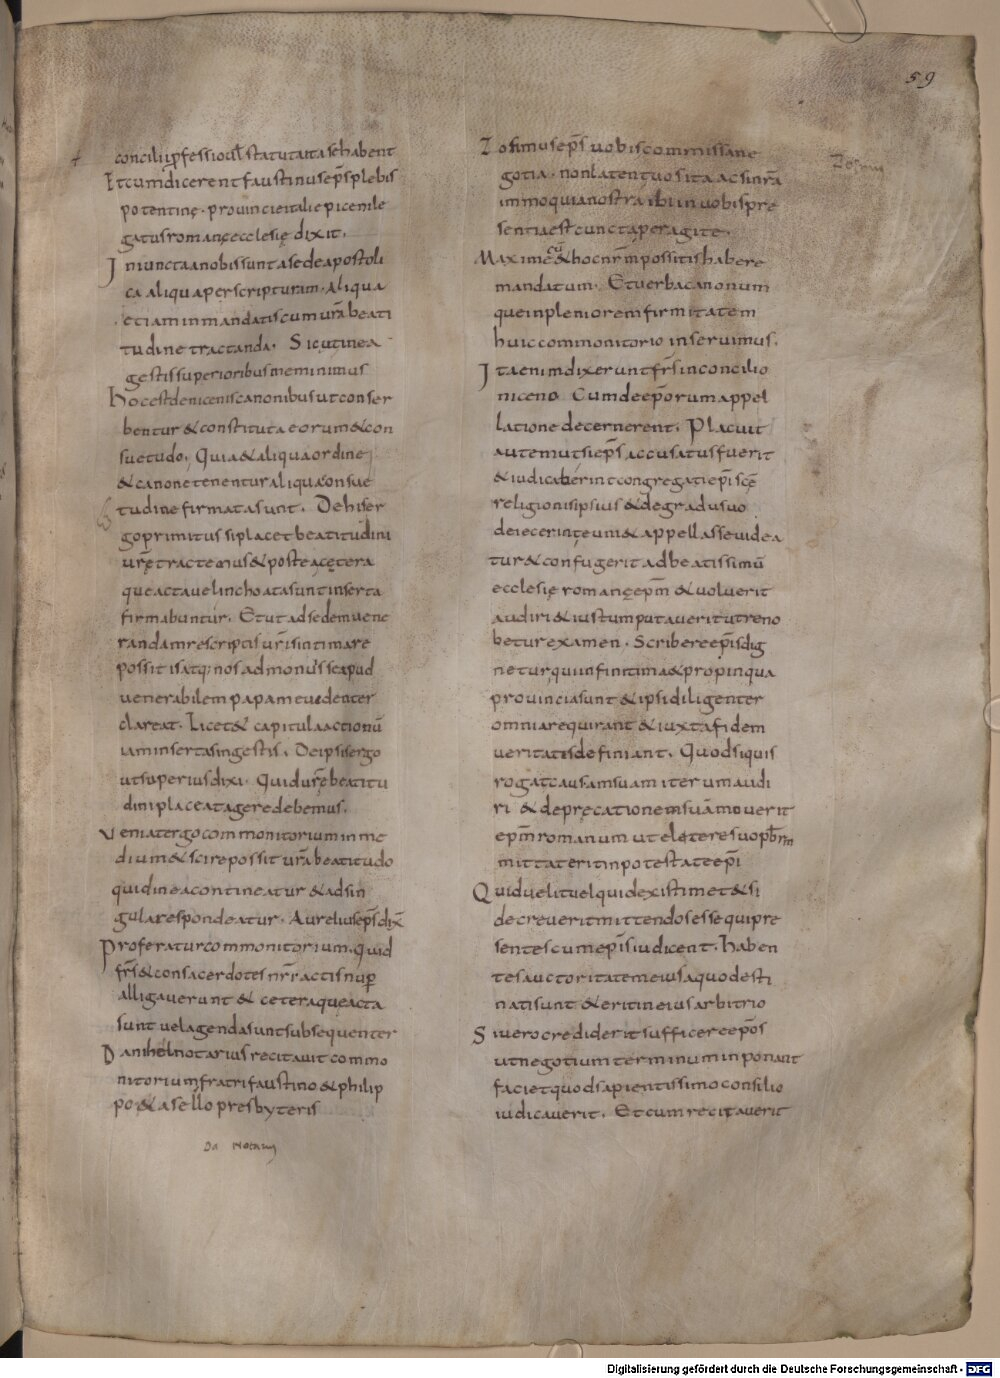 59
concilii p̄fessio ul̄ statuta ita se habent
Et cum dicerent faustinus ep̄s plebis
potentinę · prouincie italie piceni le
gatus romanę ecclesię dixit.
Iniuncta nobis sunt a sede apostoli
ca aliqua per scripturam. Aliqua
etiam in mandatis cum ur̄a beati
tudine tractanda. Sicut in ea
gestis superioribus meminimus
hoc est de nicenis canonibus ut conser
bentur & constituta eorum & con
suetudo. Quia & aliqua ordine
& canone tenentur aliqua consue
tudine firmata sunt. De his er
go primitus si placet beatitudini
ur̄ę tractemus & postea cętera
que acta uel inchoata sunt inserta
firmabuntur. Et ut ad sedem uene
randam rescriptis ur̄is intimare
possitis atq; nos admonuisse apud
uenerabilem papam euedenter
clareat. Licet & capitula actionū
iam inserta sin gestis. De ipsis ergo
ut superius dixi. Quid ur̄ę beatitu
dini placeat agere debemus.
Veniat ergo commonitorium in me
dium & scire possit ur̄a beatitudo
quid in ea contineatur & ad sin
gula respondeatur. Aurelius ep̄s dix̄
Proferatur commonitorium. quid
fr̄s & consacerdotes nr̄i actis nup̄
alligauerunt & cetera que acta
sunt uel agenda sunt subsequenter
Danihel notarius recitauit commo
nitorium fratri faustino & philip
po & asello presbyteris
Da Notarius
Zosimus ep̄s uobis commissa ne
gotia. non latent uos ita ac si nr̄a
immo quia nostra ibi in uobis pre
sentia est cuncta peragite.
Maxime cū & hoc nr̄m possitis habere
mandatum. Et uerba canonum
que in pleniorem firmitatem
huic commonitorio inseruimus.
Ita enim dixerunt fr̄s in concilio
niceno. Cum de ep̄orum appel
latione decernerent. Placuit
autem ut si ep̄s accusatus fuerit
& iudicaberint congregati ep̄i scę
religionis ipsius & de gradu suo
deiecerint eum & appellasse uidea
tur & confugerit ad beatissimū
ecclesię romanę ep̄m & uoluerit
audiri & iustum putauerit ut reno
betur examen. Scribere ep̄is dig
netur qui in finitima & propinqua
prouincia sunt & ipsi diligenter
omnia requirant & iuxta fidem
ueritatis definiant. Quod si quis
rogat causam suam iterum audi
ri & deprecationem suā mouerit
ep̄m romanum ut e latere suo pb̄rm
mittat erit in potestate ep̄i
Quid uelit uel quid existimet & si
decreuerit mittendos esse qui pre
sentes cum ep̄is iudicent. haben
tes auctoritatem eius a quo desti
nati sunt & erit in eius arbitrio
Si uero crediderit sufficere ep̄os
ut negotium terminum inponant
faciet quod sapientissimo consilio
iudicauerit. Et cum recitauerit
Digitalisierung gefördert durch die Deutsche Forschungsgemeinschaft - DFG